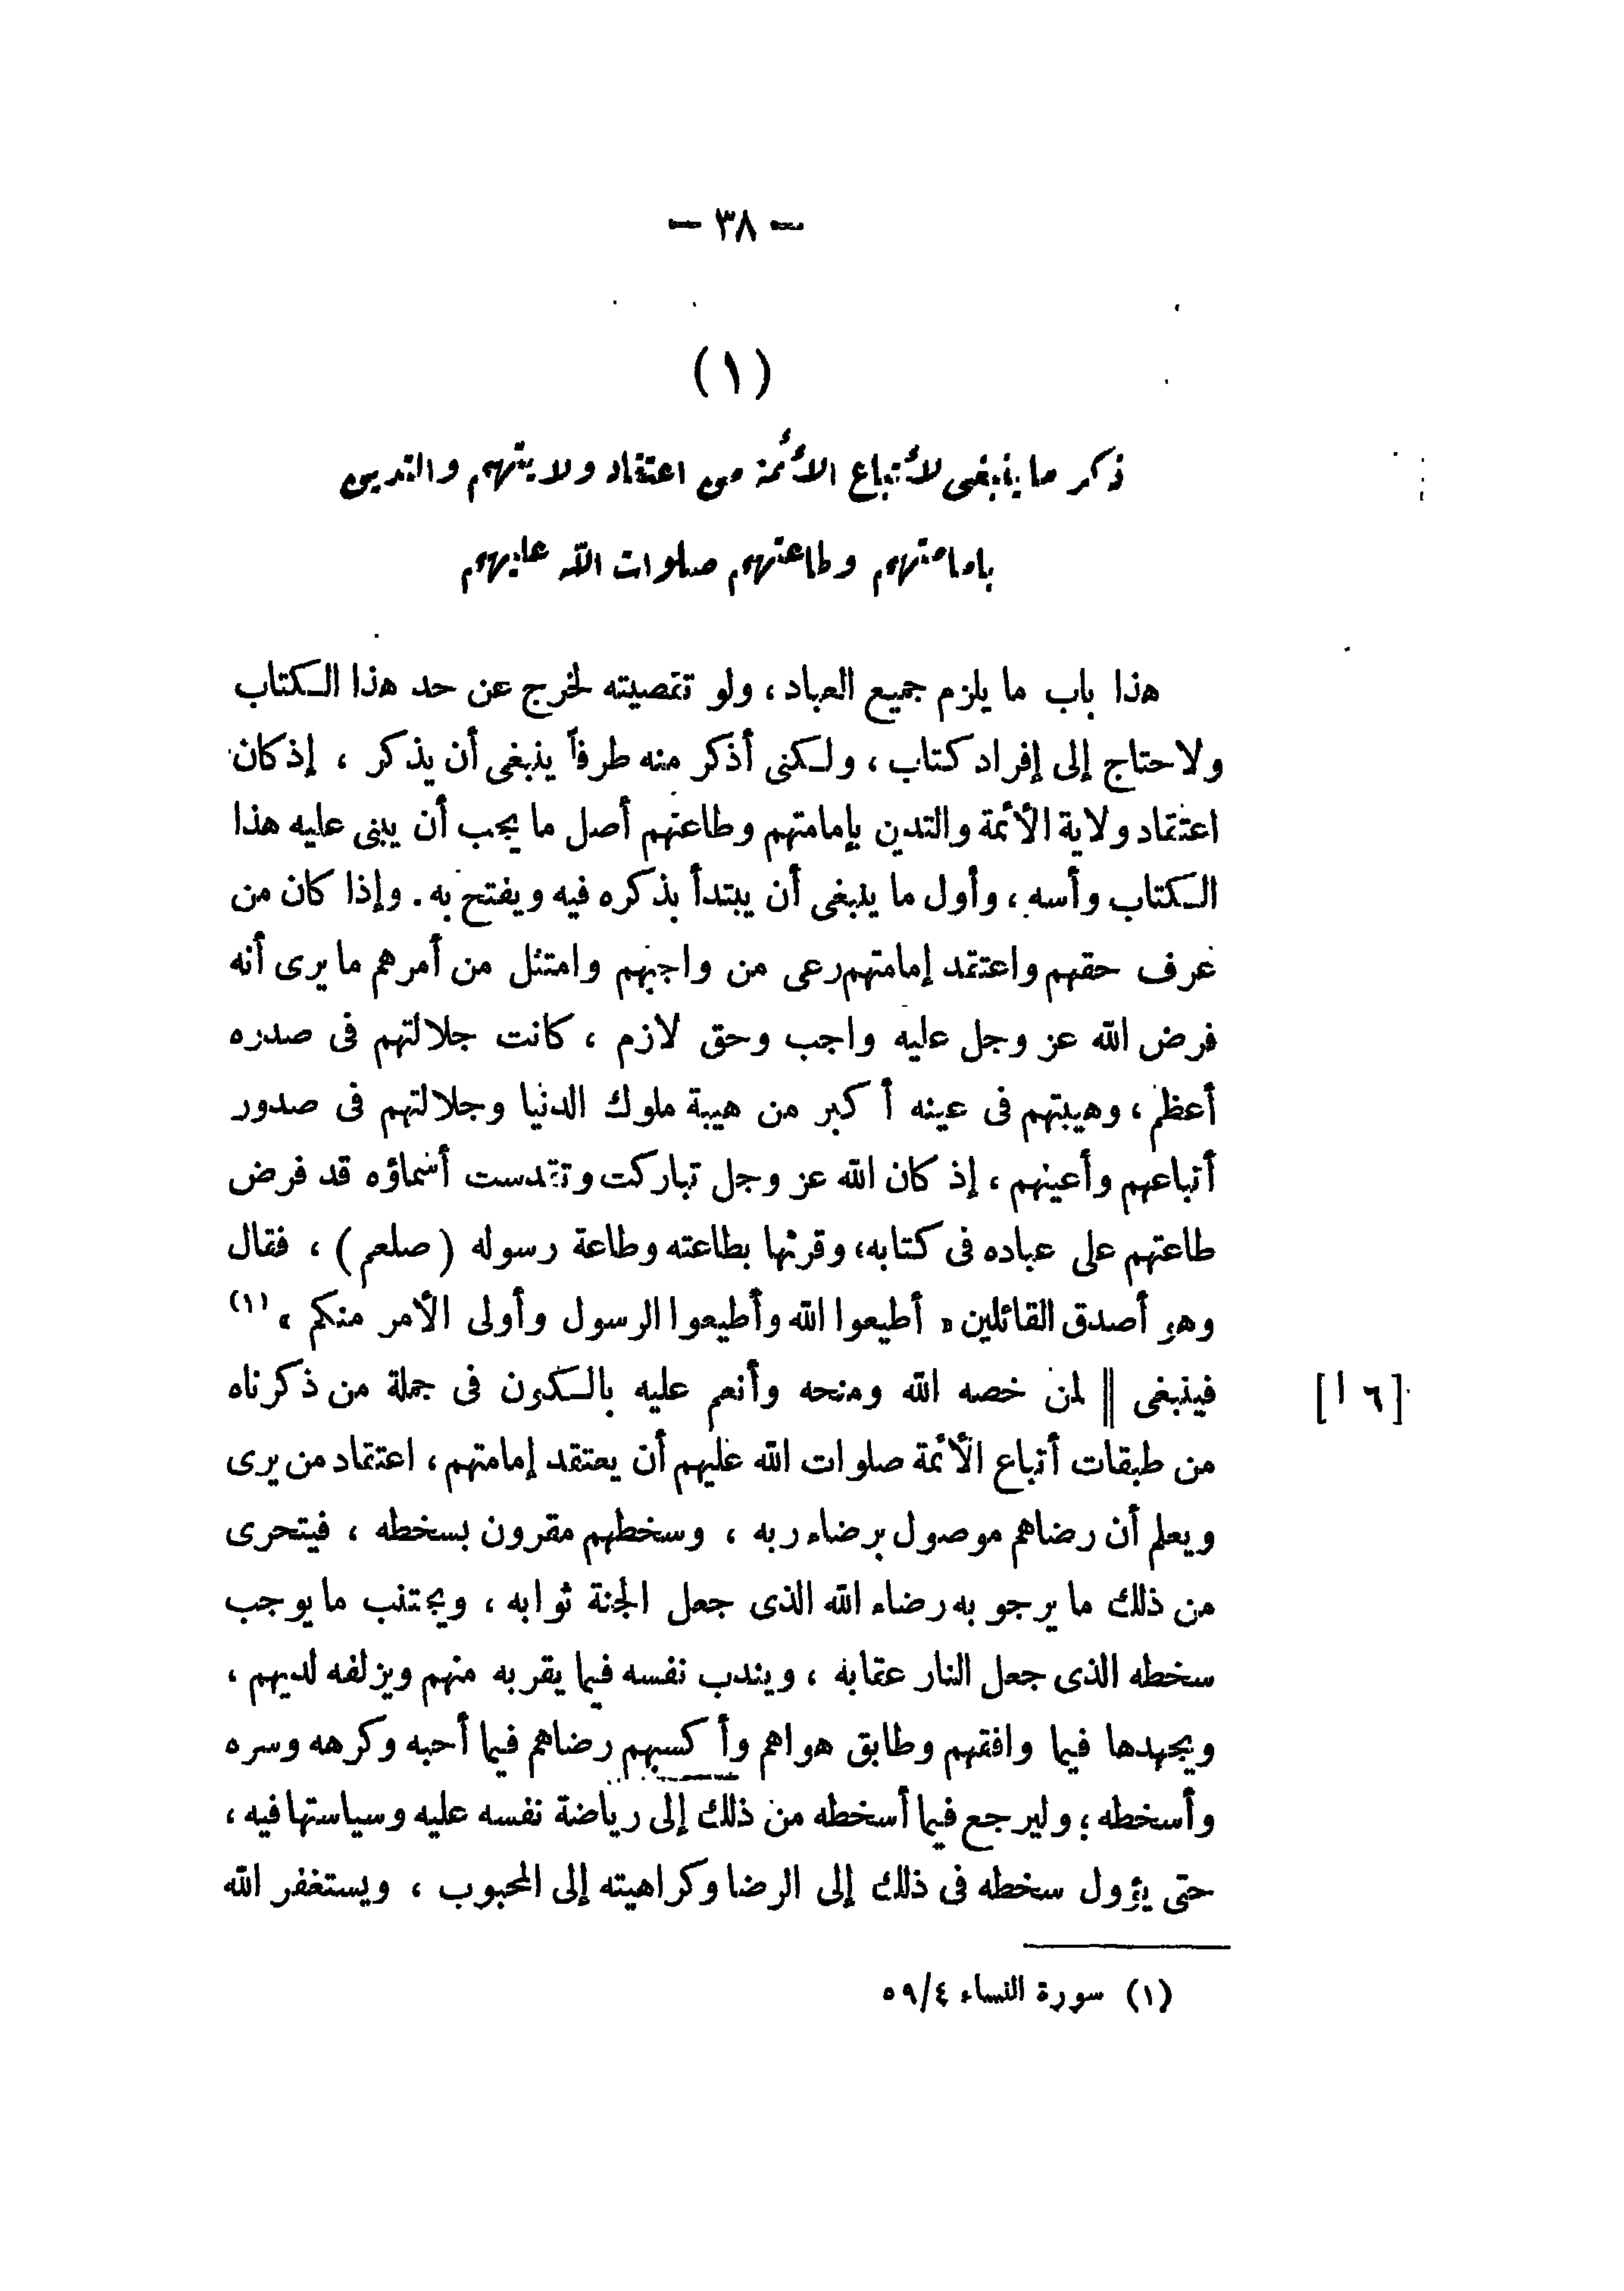 — ٣٨ —
(١)
ذكر ما ينبغى لأتباع الأئمة من اعتقاد ولايتهم والتدين
بإمامتهم وطاعتهم صلوات الله عليهم
هذا باب ما يلزم جميع العباد ، ولو تقصيته لخرج عن حد هذا الكتاب
ولاحتاج إلى إفراد كتاب ، ولكنى أذكر منه طرفاً ينبغى أن يذكر ، إذ كان
اعتقاد ولاية الأئمة والتدين بإمامتهم وطاعتهم أصل ما يجب أن يبنى عليه هذا
الكتاب وأسه ، وأول ما ينبغى أن يبتدأ بذكره فيه ويفتح به . وإذا كان من
عرف حقهم واعتقد إمامتهم رعى من واجبهم وامتثل من أمرهم ما يرى أنه
فرض الله عز وجل عليه واجب وحق لازم ، كانت جلالتهم فى صدره
أعظم ، وهيبتهم فى عينه أكبر من هيبة ملوك الدنيا وجلالتهم فى صدور
أتباعهم وأعينهم ، إذ كان الله عز وجل تباركت وتقدست أسماؤه قد فرض
طاعتهم على عباده فى كتابه ، وقرنها بطاعته وطاعة رسوله ( صلعم ) ، فقال
وهو أصدق القائلين « أطيعوا الله وأطيعوا الرسول وأولى الأمر منكم » (١)
فينبغى || لمن خصه الله ومنحه وأنعم عليه بالكون فى جملة من ذكرناه
[١٦]
من طبقات أتباع الأئمة صلوات الله عليهم أن يعتقد إمامتهم ، اعتقاد من يرى
ويعلم أن رضاهم موصول برضاء ربه ، وسخطهم مقرون بسخطه ، فيتحرى
من ذلك ما يرجو به رضاء الله الذى جعل الجنة ثوابه ، ويجتنب ما يوجب
سخطه الذى جعل النار عقابه ، ويندب نفسه فيما يقربه منهم ويزلفه لديهم ،
ويجهدها فيما وافقهم وطابق هواهم وأكسبهم رضاهم فيما أحبه وكرهه وسره
وأسخطه ؛ وليرجع فيما أسخطه من ذلك إلى رياضة نفسه عليه وسياستها فيه ،
حتى يؤول سخطه فى ذلك إلى الرضا وكراهيته إلى المحبوب ، ويستغفر الله
(١) سورة النساء ٥٩/٤